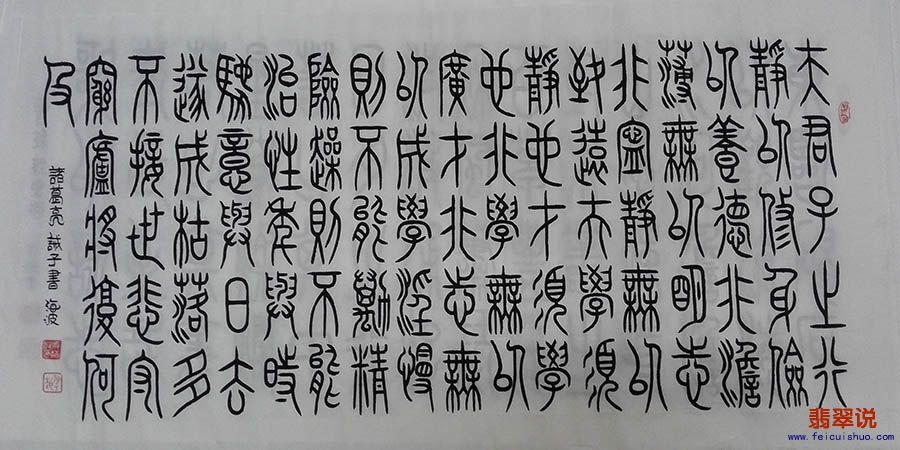 夫君子之行
靜以修身儉
以養德非澹
薄無以明志
非寧靜無以
致遠夫學須
靜也才須學
也非學無以
廣才非志無
以成學淫慢
則不能勵精
險躁則不能
治性年與時
馳意與日去
遂成枯落多
不接世悲守
窮廬將復何
及
諸葛亮 誡子書 海波
翡翠说
www.feicuishuo.com